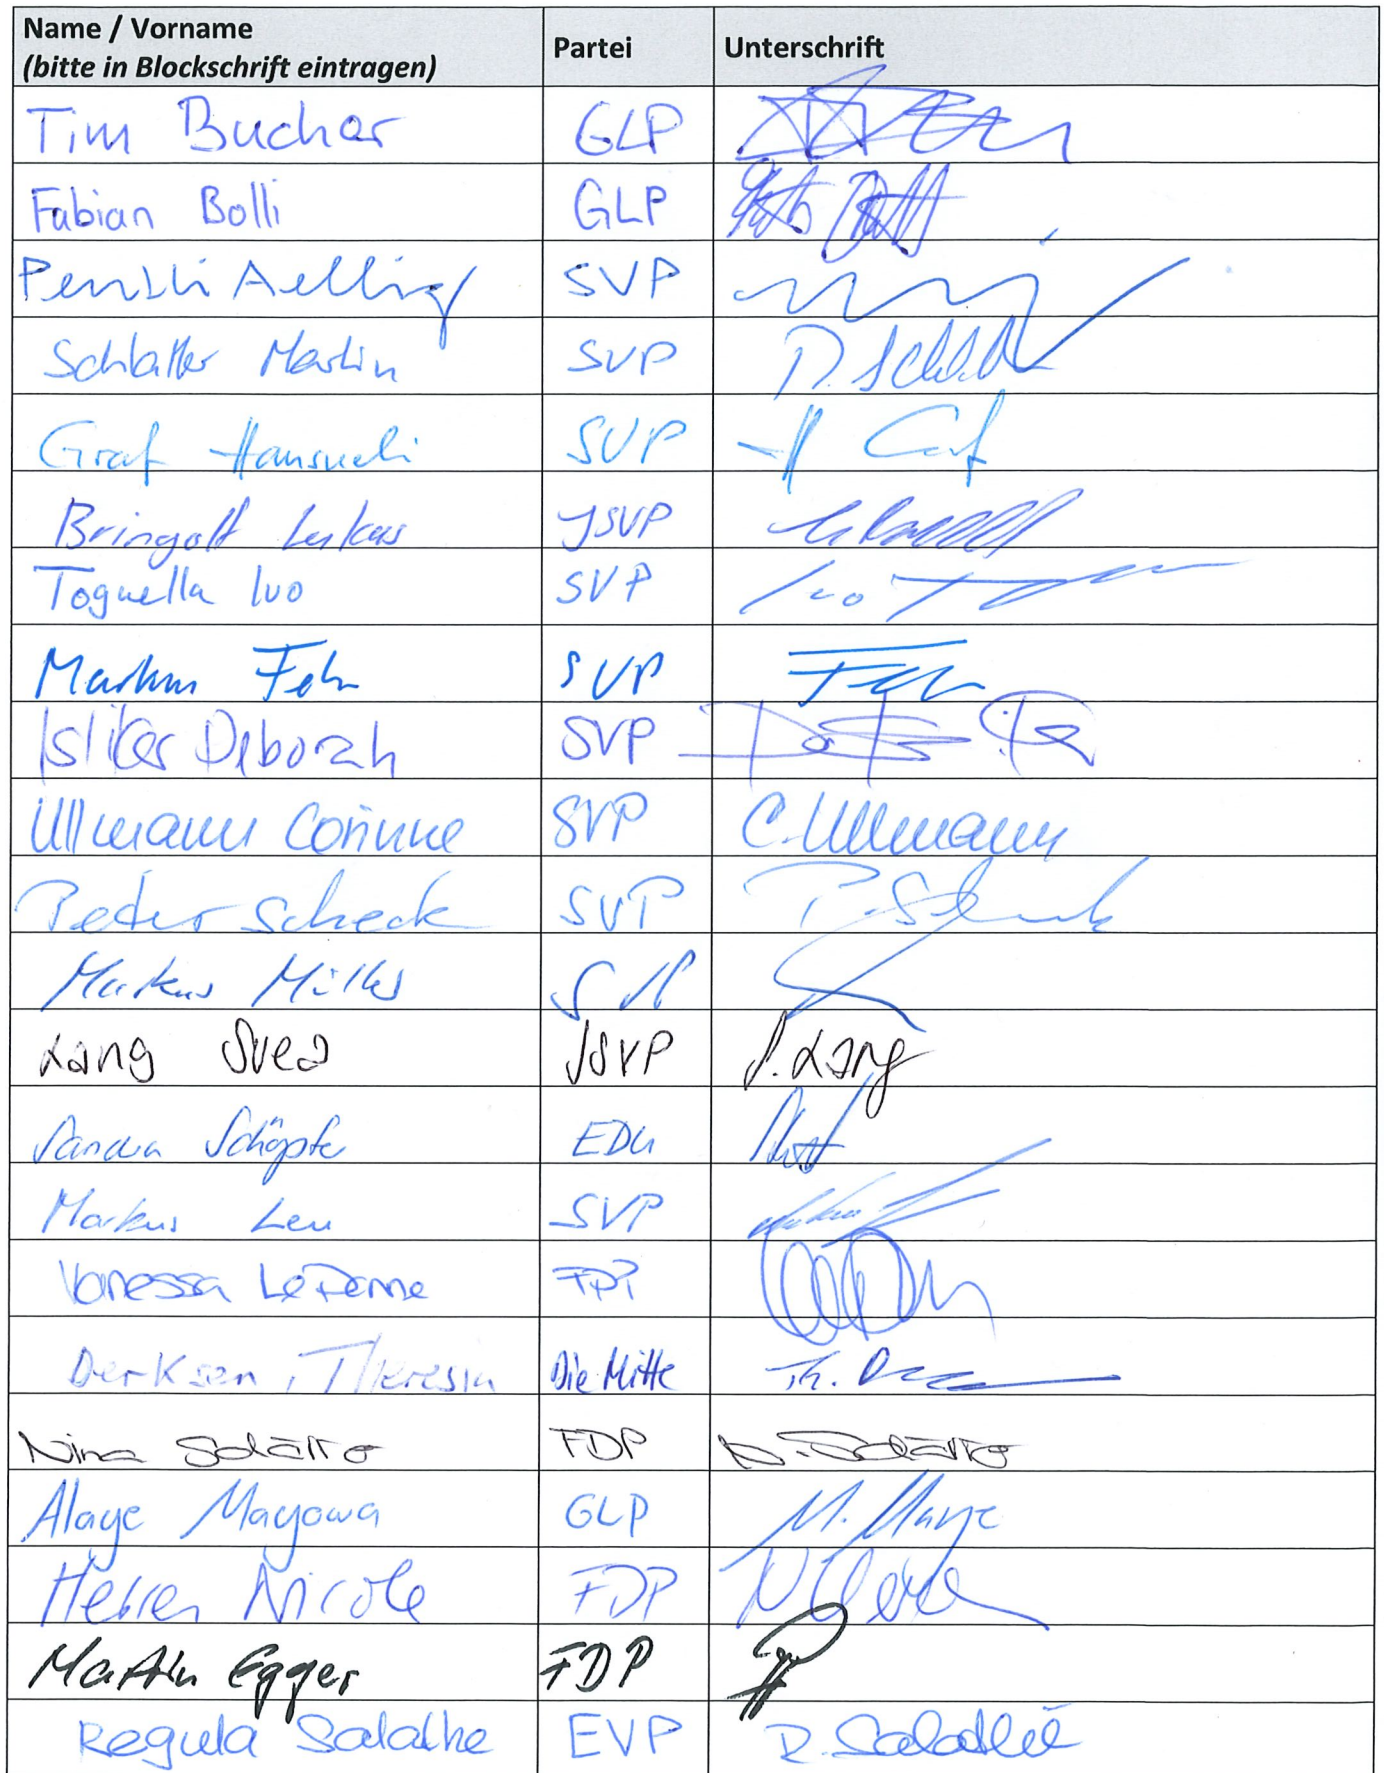 Name / Vorname Partei Unterschrift
(bitte in Blockschrift eintragen)
Tim Bucher GLP
Fabian Bolli GLP
Pentti Aellig SVP
Schlatter Martin SVP
Graf Hansueli SVP H Graf
Bringolf Lukas JSVP
Tognella Ivo SVP Ivo T
Markus Fehr SVP Fehr
Isliker Deborah SVP
Ullmann Corinne SVP C. Ullmann
Peter Scheck SVP P. Scheck
Markus Müller SVP
Lang Svea JSVP S. Lang
Schöpfer EDU
Markus Leu SVP
Vanessa Le FDP
Derksen, Theresia Die Mitte Th. D
Nina FDP N.
Alaye Mayowa GLP M. Alaye
Herren Nicole FDP
Martin Egger FDP
Regula Salathe EVP R. Salathé